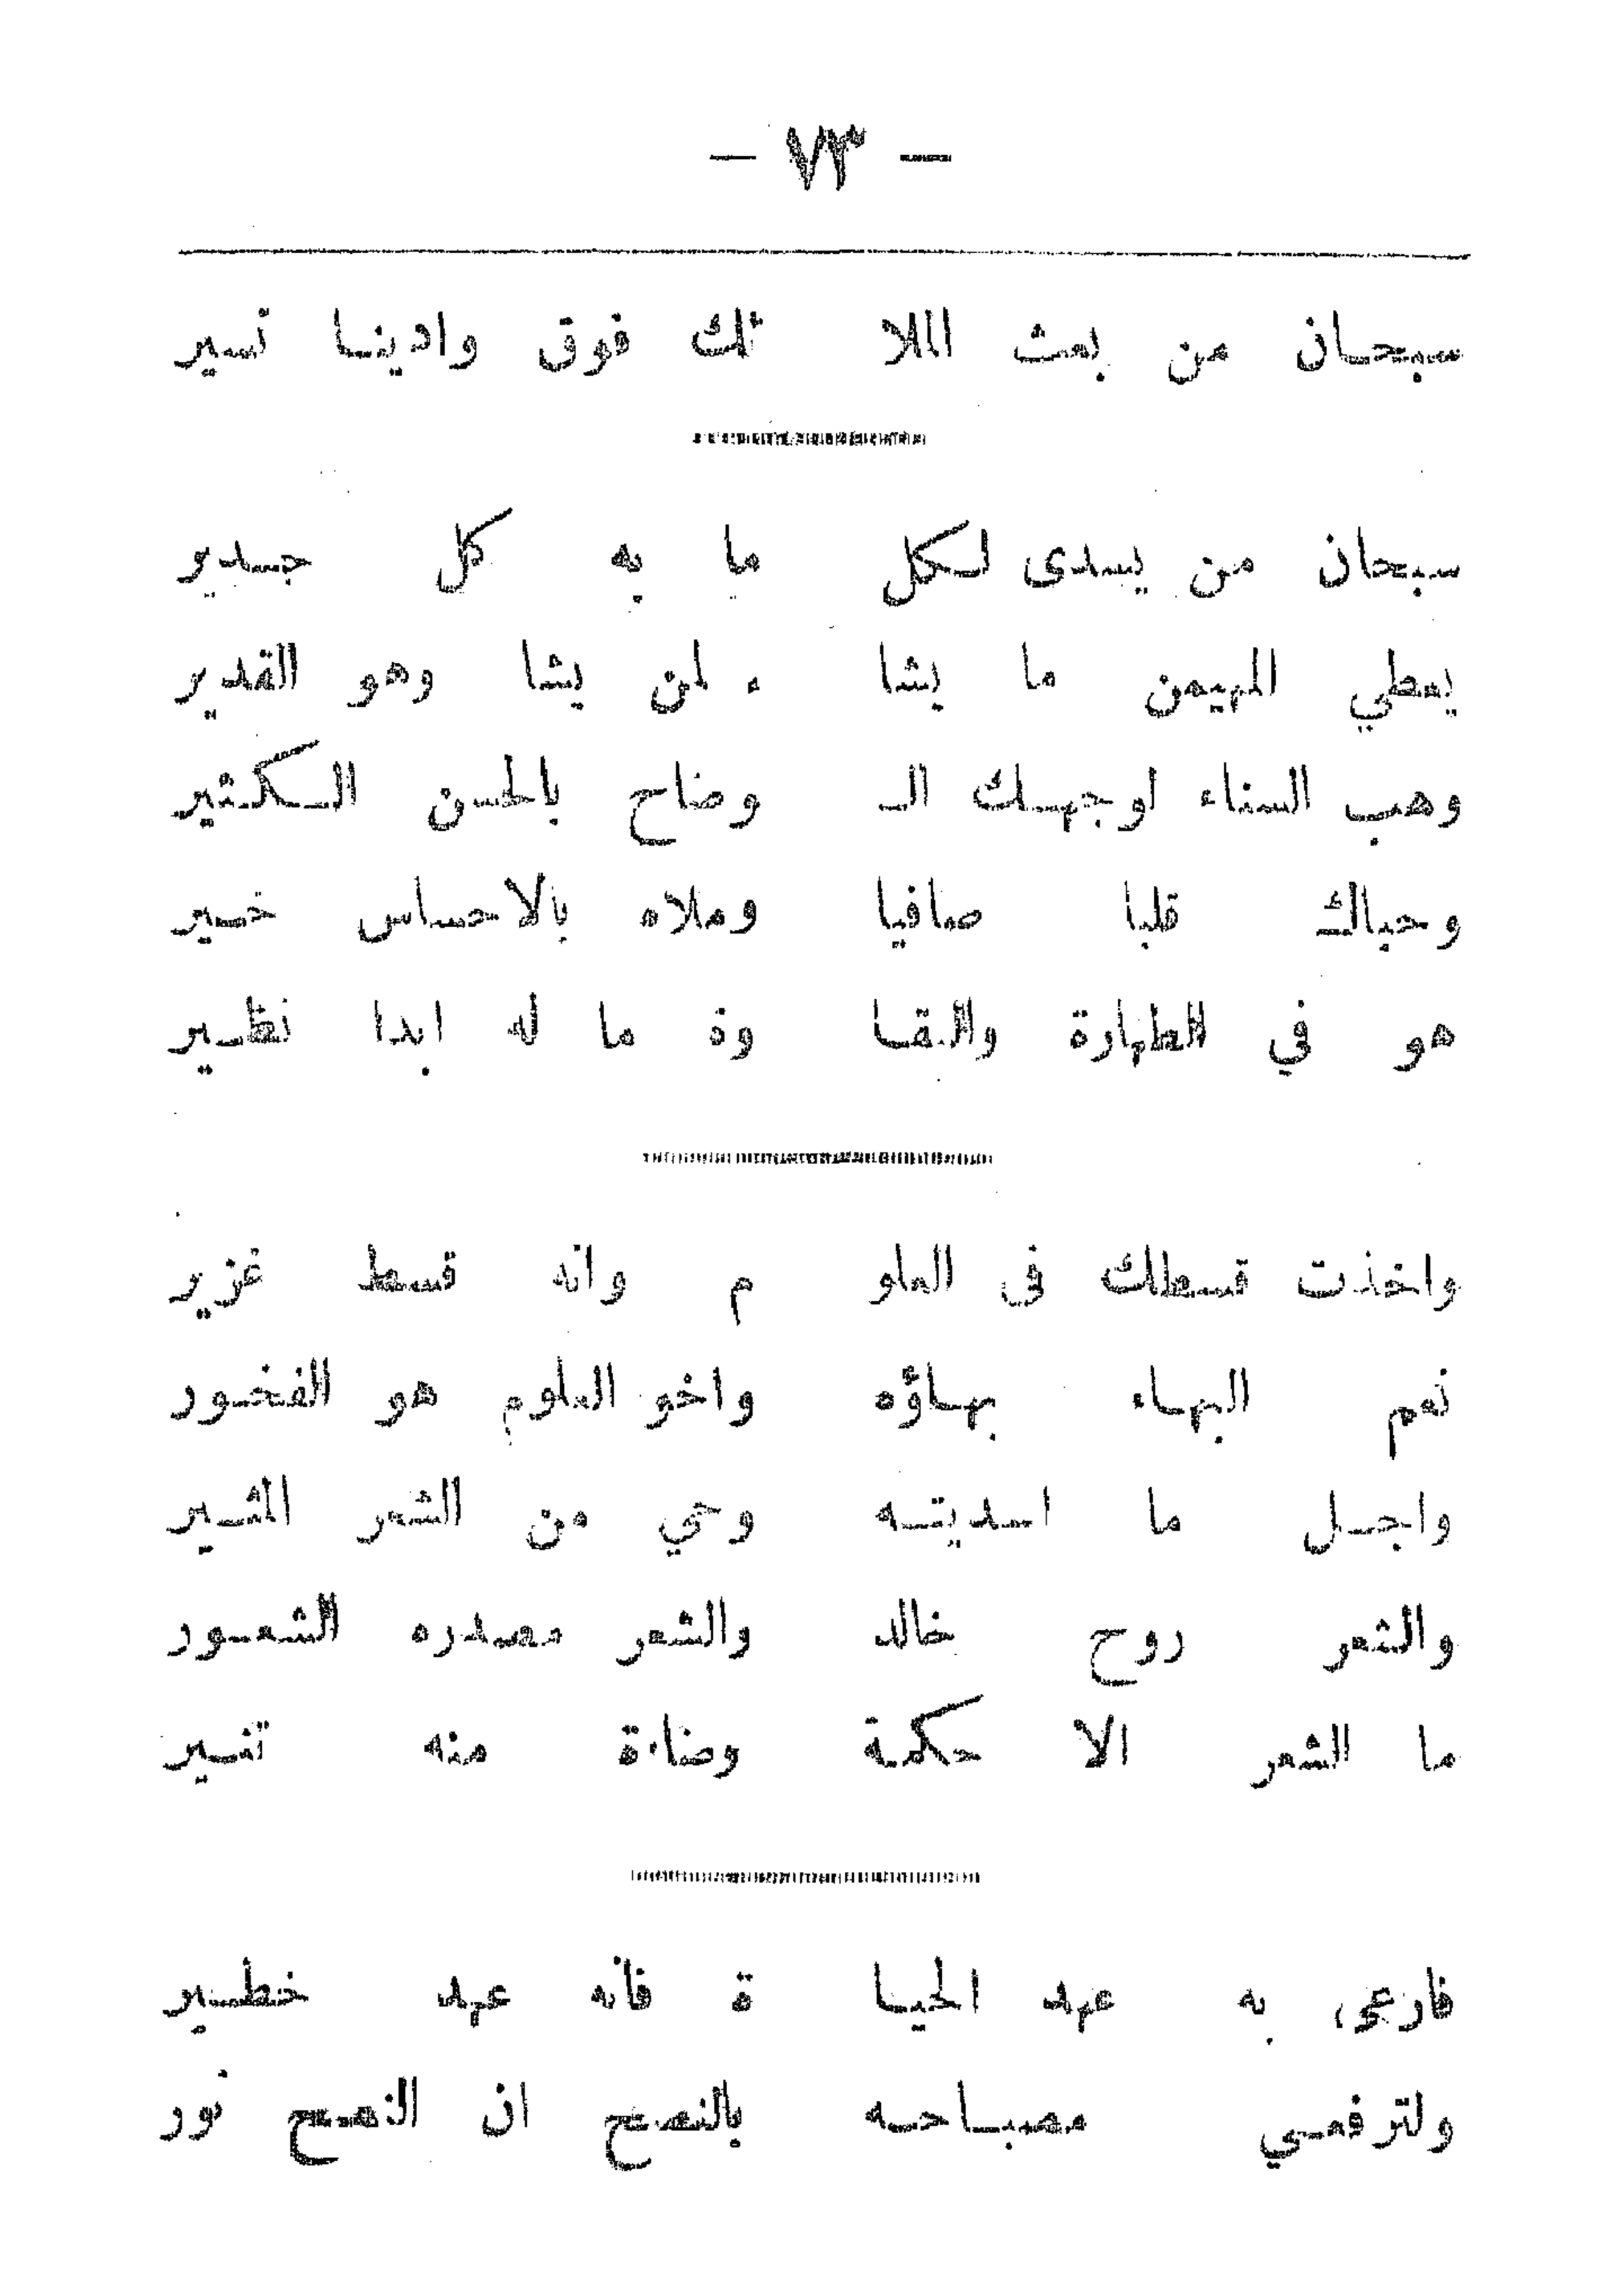 — ٧٣ —
سبحان من بعث الملا ئك فوق وادينا تسير
سبحان من يسدى لكل ما به كل جدير
يعطي المهيمن ما يشا ء لمن يشا وهو القدير
وهب السناء لوجهك الـ وضاح بالحسن الكثير
وحباك قلبا صافيا وملاه بالاحساس خير
هو في الطهارة والنقا وة ما له ابدا نظير
واخذت قسطك فى العلو م وانه قسط غزير
نعم البهاء بهاؤه واخو العلوم هو الفخور
واجل ما اسديته وحي من الشعر المثير
والشعر روح خالد والشعر مصدره الشعور
ما الشعر الا حكمة وضاءة منه تنير
فارعى به عهد الحيا ة فانه عهد خطير
ولترفعي مصباحه بالنصح ان النصح نور